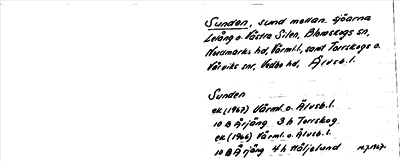 Sunden, sund mellan sjöarna
Lelång o. Västra Silen, Blomskogs sn,
Nordmarks hd, Värml., samt Torrskogs o.
Vårviks snr, Vedbo hd, Älvsb. l.
Sunden
ek (1967) Värml. o. Älvsb. l.
10 B Årjäng 3 h Torrskog
ek (1966) Värml. o. Älvsb. l.
10 B Årjäng 4 h